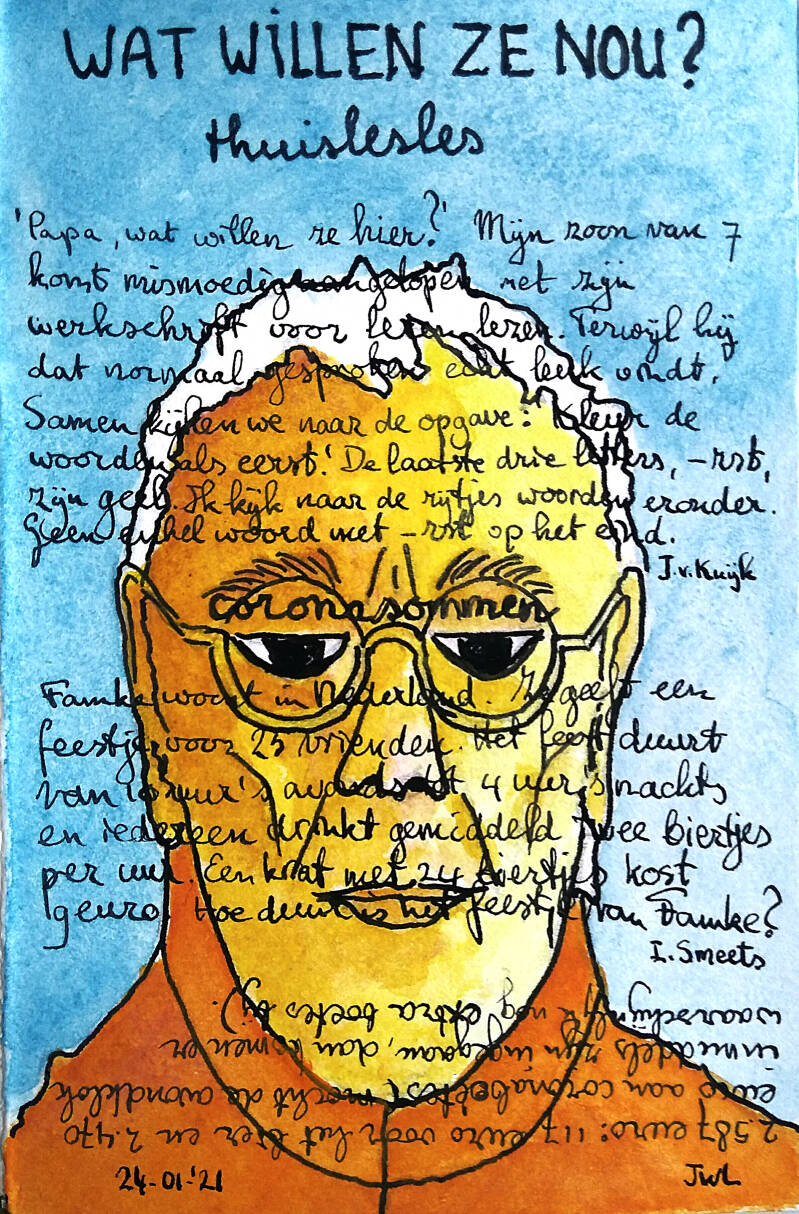 WAT WILLEN ZE NOU?
thuislesles
'Papa, wat willen ze hier?' Mijn zoon van 7
komt mismoedig aangelopen met zijn
werkschrift voor leren lezen. Terwijl hij
dat normaal gesproken echt leuk vindt.
Samen kijken we naar de opgave: 'Kleur de
woorden als eerst.' De laatste drie letters, -rst,
zijn geel. Ik kijk naar de rijtjes woorden eronder.
Geen enkel woord met -rst op het eind.
J.v.Kuijk
coronasommen
Famke woont in Nederland. Ze geeft een
feestje voor 25 vrienden. Het feest duurt
van uur 's avonds tot 4 uur 's nachts
en iedereen drinkt gemiddeld twee biertjes
per uur. Een krat met 24 biertjes kost
9 euro. Hoe duur is het feestje van Famke?
I. Smeets
2.587 euro: 117 euro voor het bier en 2.470
euro aan coronaboetes (mocht de avondklok
inmiddels zijn ingegaan, dan komen er
waarschijnlijk nog extra boetes bij).
24-01-'21
JWL